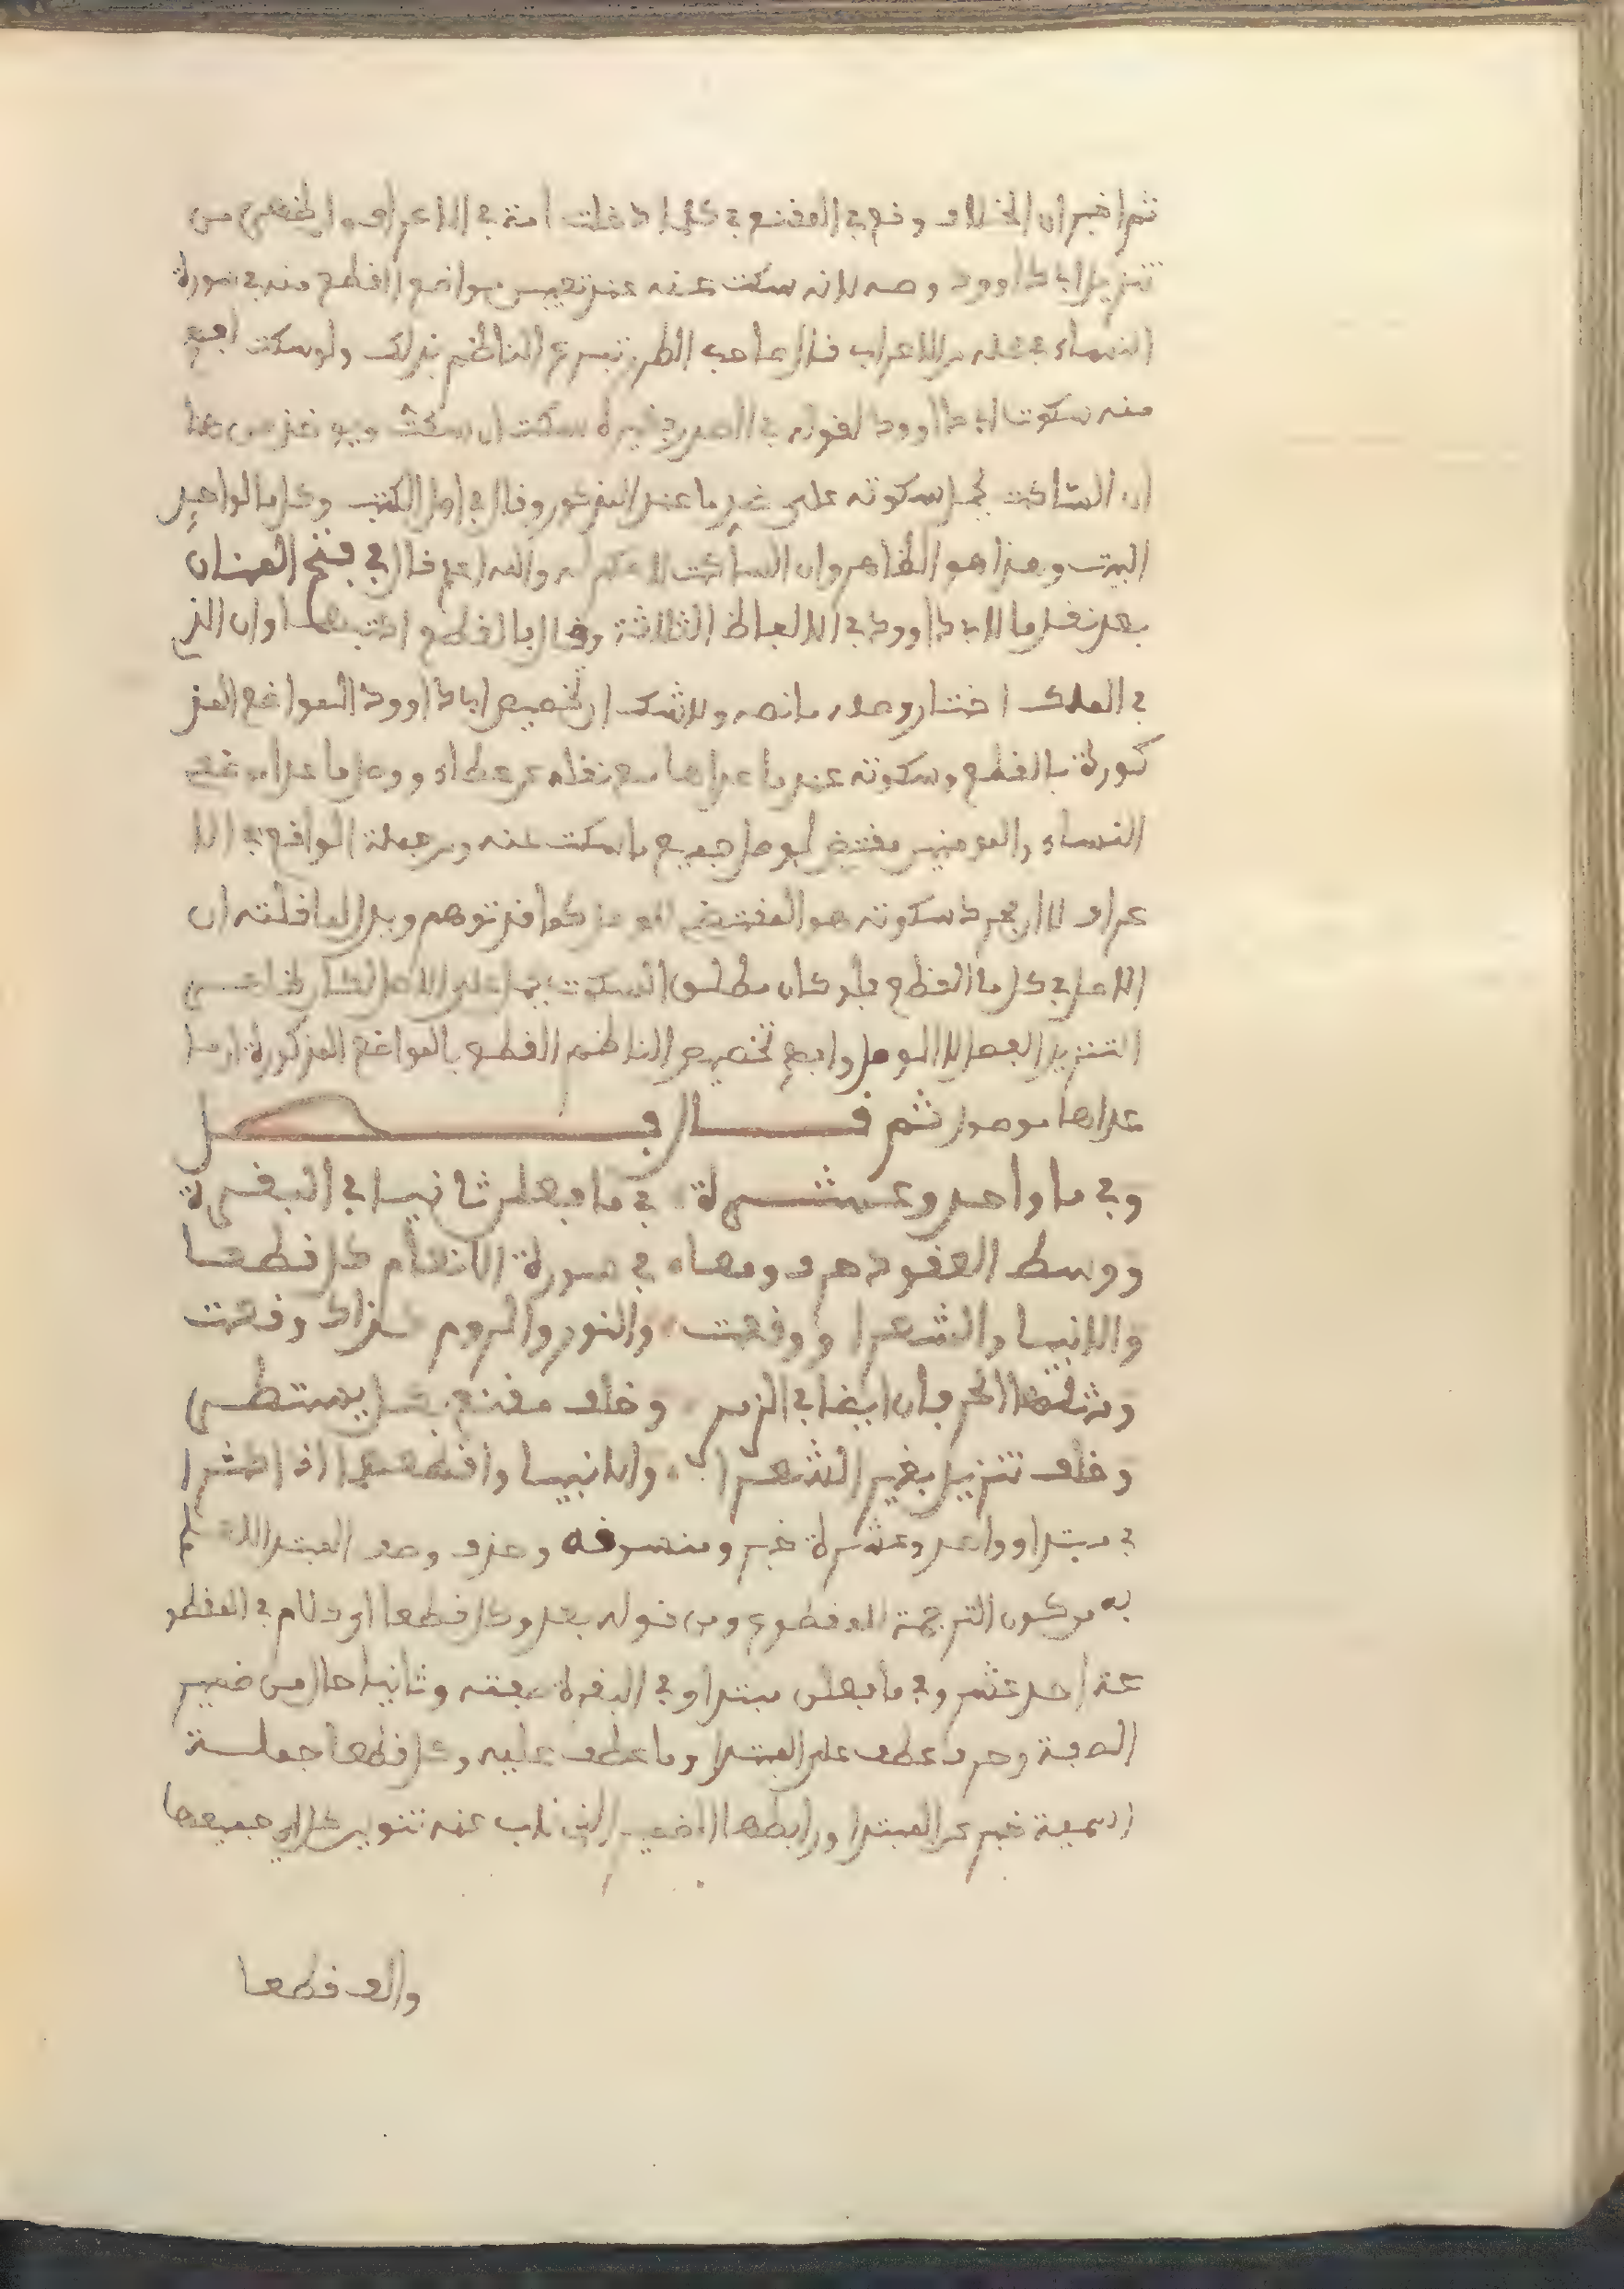 ثم اخبر ان الخلاف وقع في المقنع في كلما دخلت امة في الاعراف والخصم من
تنزيل ابي داوود وصله لانه سكت عنه عند تعيين مواضع القطع منه في سورة
النساء في نقله من الاعراب قال صاحب الطرر تبرع الناظم بذلك ولو سكت افهم
منه سكوت ابي داوود لقوله في الصدر سكت ان سكت وهو من هنا
ان الساكت يحمل سكوته على غير ما عند المذكور وقال في اول الكتب وكل ما لواحد
البيت وهذا هو الظاهر وان الساكت لا حكم له والله اعلم قال في فتح المنان
بعد نقل ما لابي داوود في الالفاظ الثلاثة وقال بالقطع اكتبها وان الذي
في الملك اختار وصله ما نصه ولا شك ان تخصيص ابا داوود المواضع المذ
كورة بالقطع وسكوته عند ما عداها مع نقله عن عطاء ووصل ما عدا موضع
النساء والمومنين مقتض لوصل جميع ما سكت عنه ومن جملة الواقع في الا
عراف لا ان مجرد سكوته هو المقتضي للوصل كما قد توهم ويدل لما قلته ان
الاصل في كل ما القطع فلو كان مطلق السكوت يحمل على الاصل لكان ظاهر
التنزيل الفصل لا الوصل وافهم تخصيص الناظم القطع بالمواضع المذكورة ان ما
عداها موصول ثم قال فصل
وفي ما واحد وعشرة في ما فعلن ثانيا في البقرة
ووسط العقود حرف ومعا في سورة الانعام كل قطعا
والانبيا والشعرا ووقعت والنور والروم كذاك وقعت
ومثلها الحرفان ايضا في الزمر وخلف مقنع بكل يستطر
وخلف تنزيل بغير الشعرا والانبيا واقطعهما اذ اكثرا
في مبتدا وواحد وعشرة خبر ومنصرفه وحذف وصف المبتدا للعلم
به من كون الترجمة للمقطوع ومن قوله بعد وكل قطعا اي كلام في المقطو
عة احد عشر وفي ما فعلن مبتدا وفي البقرة صفته وثانيا حال من ضمير
الصفة وحرف عطف على المبتدا وما عطف عليه وكل قطعا جملة
اسمية خبر عن المبتدا ورابطها الضمير الذي ناب عنه تنوين كل اي جميعها
والف قطعا